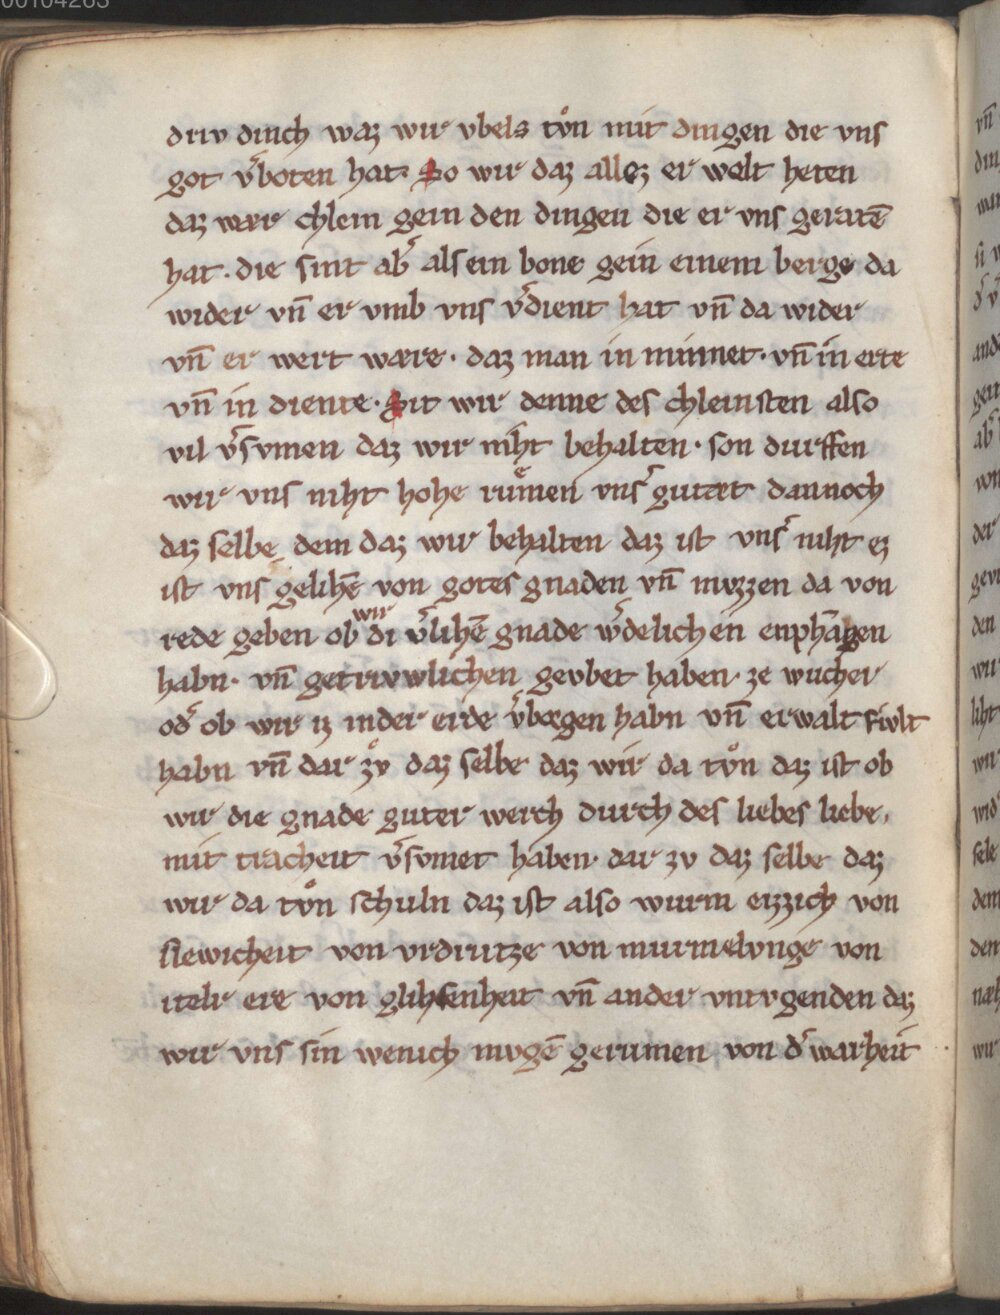 00104263
driv dinch waz wir vbels tůn mit dingen die vns
got v̾boten hat. So wir daz allez er welt heten
daz wær chlein gein den dingen die er vns geratē
hat. die sint ab̾ als ein bone gein einem berge da
wider vn̄ er vmb vns v̾dient hat vn̄ da wider
vn̄ er wert wære. daz man in minnet. vn̄ in erte
vn̄ in diente. Sit wir denne des chleinsten also
vil v̾svmen daz wir niht behalten. son durffen
wir vns niht hohe růmen vns̾ gutæt dannoch
daz selbe dem daz wir behalten daz ist vns̾ niht ez
ist vns gelihē von gotes gnaden vn̄ mvzzen da von
rede geben ob wir di v̾lihē gnade w̾delichen enphāgen
habn. vn̄ getrivwlichen gevbet haben. ze wucher
od̾ ob wir iz in der erde v̾borgen habn vn̄ erwalt sivlt
habn vn̄ dar zů daz selbe daz wir da tůn daz ist ob
wir die gnade guter werch durch des liebes liebe,
mit tracheit v̾svmet haben. dar zv daz selbe daz
wir da tůn schuln daz ist also wurm ezzich von
slewicheit von vrdrutze von murmelvnge von
itelr ere von glihsenheit vn̄ ander vntvgenden daz
wir vns sin wenich mvgē gerumen von d̾ warheit